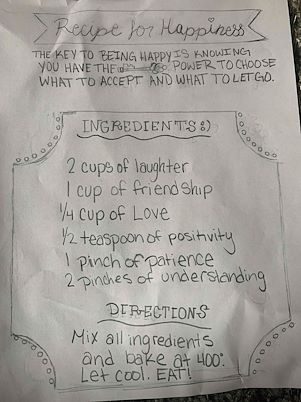 Recipe for Happiness
THE KEY TO BEING HAPPY IS KNOWING
YOU HAVE THE POWER TO CHOOSE
WHAT TO ACCEPT AND WHAT TO LET GO.
INGREDIENTS:)
2 cups of laughter
1 cup of friendship
1/4 cup of Love
1/2 teaspoon of positivity
1 pinch of patience
2 pinches of understanding
DIRECTIONS
Mix all ingredients
and bake at 400°.
Let cool. EAT!